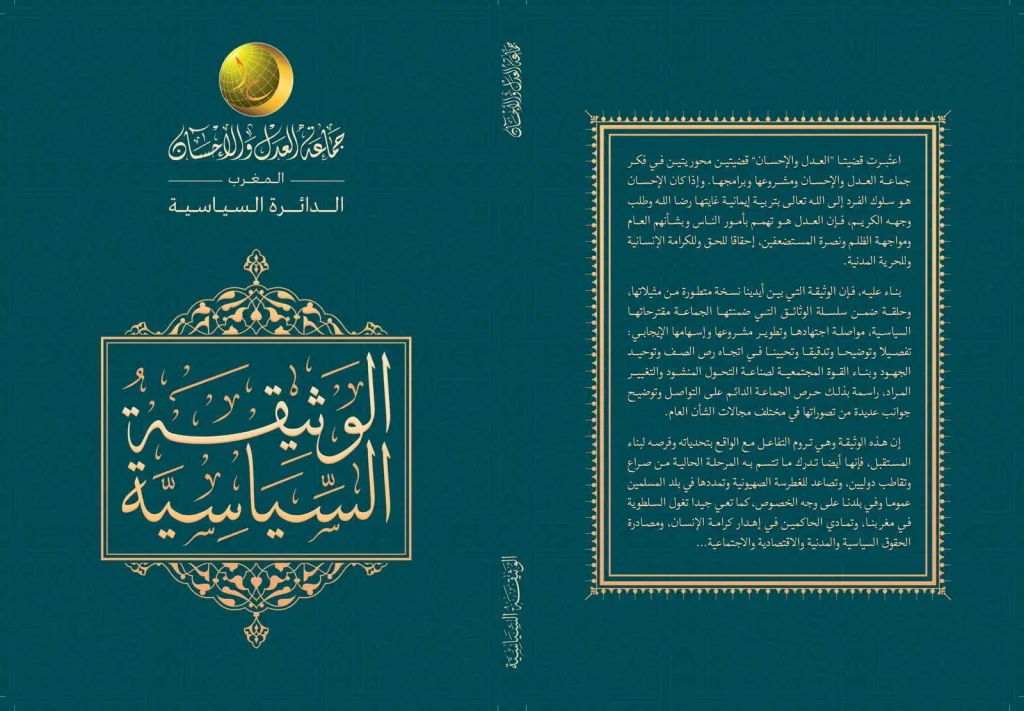 جماعة العدل والإحسان
المغرب
الدائرة السياسية
الوَثيقةُ
السِّيَاسِيَّة
جماعة العدل والإحسان
الوثيقة السياسية
اعتُبرت قضيتا "العدل والإحسان" قضيتين محوريتين في فكر
جماعة العدل والإحسان ومشروعها وبرامجها. وإذا كان الإحسان
هو سلوك الفرد إلى الله تعالى بتربية إيمانية غايتها رضا الله وطلب
وجهه الكريم، فإن العدل هو تهمم بأمور الناس وبشأنهم العام
ومواجهة الظلم ونصرة المستضعفين، إحقاقا للحق وللكرامة الإنسانية
وللحرية المدنية.
بناء عليه، فإن الوثيقة التي بين أيدينا نسخة متطورة من مثيلاتها،
وحلقة ضمن سلسلة الوثائق التي ضمنتها الجماعة مقترحاتها
السياسية، مواصلة اجتهادها وتطوير مشروعها وإسهامها الإيجابي:
تفصيلا وتوضيحا وتدقيقا وتحيينا في اتجاه رص الصف وتوحيد
الجهود وبناء القوة المجتمعية لصناعة التحول المنشود والتغيير
المراد، راسمة بذلك حرص الجماعة الدائم على التواصل وتوضيح
جوانب عديدة من تصوراتها في مختلف مجالات الشأن العام.
إن هذه الوثيقة وهي تروم التفاعل مع الواقع بتحدياته وفرصه لبناء
المستقبل، فإنها أيضا تدرك ما تتسم به المرحلة الحالية من صراع
وتقاطب دوليين، وتصاعد للغطرسة الصهيونية وتمددها في بلد المسلمين
عموما وفي بلدنا على وجه الخصوص، كما تعي جيدا تغول السلطوية
في مغربنا، وتمادي الحاكمين في إهدار كرامة الإنسان، ومصادرة
الحقوق السياسية والمدنية والاقتصادية والاجتماعية...